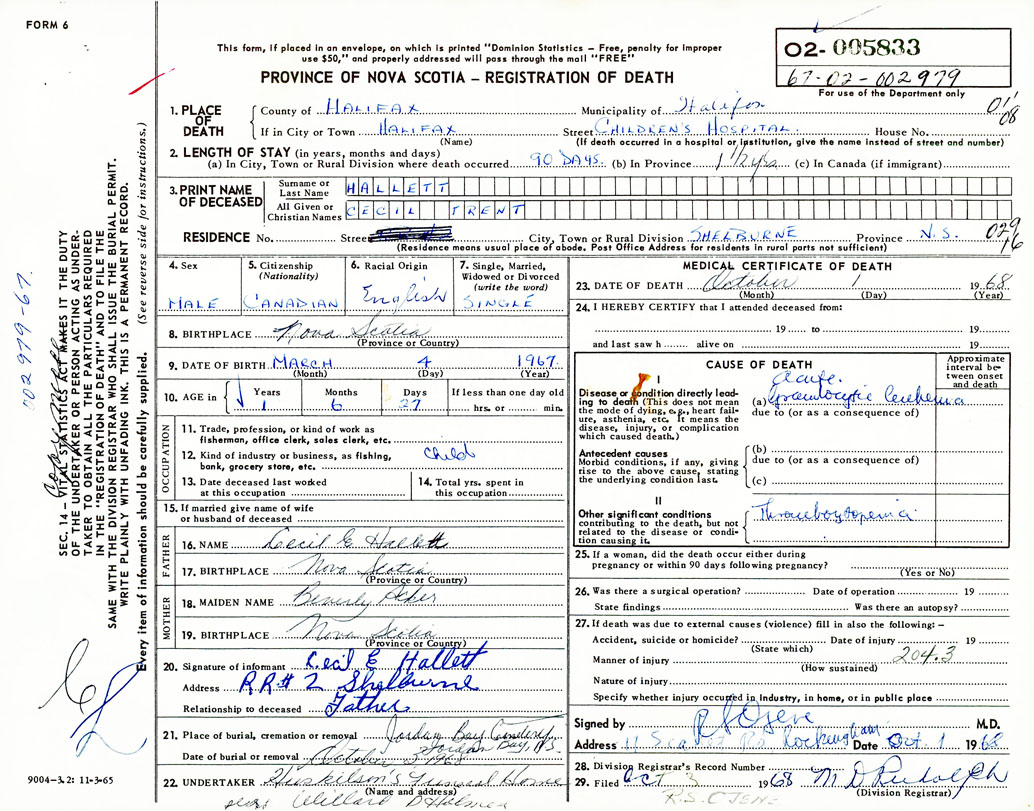 FORM 6
This form, if placed in an envelope, on which is printed "Dominion Statistics – Free, penalty for improper
use $50," and properly addressed will pass through the mail "FREE"
PROVINCE OF NOVA SCOTIA – REGISTRATION OF DEATH
02-005833
67-02-002979
For use of the Department only
1. PLACE OF DEATH
County of HALIFAX Municipality of Halifax 01/08
If in City or Town HALIFAX Street CHILDREN'S HOSPITAL. House No.
(Name) (If death occurred in a hospital or institution, give the name instead of street and number)
2. LENGTH OF STAY (in years, months and days)
(a) In City, Town or Rural Division where death occurred 90 DAYS. (b) In Province 1 1/2 yrs (c) In Canada (if immigrant)
3. PRINT NAME OF DECEASED
Surname or Last Name HALLETT
All Given or Christian Names CECIL TRENT
RESIDENCE No. Street City, Town or Rural Division SHELBURNE Province N.S. 029/16
(Residence means usual place of abode. Post Office Address for residents in rural parts not sufficient)
4. Sex MALE
5. Citizenship (Nationality) CANADIAN
6. Racial Origin English
7. Single, Married, Widowed or Divorced (write the word) SINGLE
8. BIRTHPLACE Nova Scotia
(Province or Country)
9. DATE OF BIRTH MARCH 4 1967.
(Month) (Day) (Year)
10. AGE in Years 1 Months 6 Days 27 If less than one day old
hrs. or min.
OCCUPATION
11. Trade, profession, or kind of work as
fisherman, office clerk, sales clerk, etc.
12. Kind of industry or business, as fishing, child
bank, grocery store, etc.
13. Date deceased last worked
at this occupation
14. Total yrs. spent in
this occupation
15. If married give name of wife
or husband of deceased
FATHER
16. NAME Cecil E Hallett
17. BIRTHPLACE Nova Scotia
(Province or Country)
MOTHER
18. MAIDEN NAME Beverly Acker
19. BIRTHPLACE Nova Scotia
(Province or Country)
20. Signature of informant Cecil E Hallett
Address RR# 2 Shelburne
Relationship to deceased Father
21. Place of burial, cremation or removal Jordan Bay Cemetery
Jordan Bay, N.S.
Date of burial or removal October 3 1968
22. UNDERTAKER Huskilson's Funeral Home
(Name and address)
MEDICAL CERTIFICATE OF DEATH
23. DATE OF DEATH October 1 1968
(Month) (Day) (Year)
24. I HEREBY CERTIFY that I attended deceased from:
19 to 19
and last saw h alive on 19
CAUSE OF DEATH
Approximate interval between onset and death
I
Disease or condition directly lead-
ing to death (This does not mean
the mode of dying, e.g., heart fail-
ure, asthenia, etc. It means the
disease, injury, or complication
which caused death.)
acute
(a) Granulocytic Leukemia
due to (or as a consequence of)
Antecedent causes
Morbid conditions, if any, giving
rise to the above cause, stating
the underlying condition last.
(b)
due to (or as a consequence of)
(c)
II
Other significant conditions
contributing to the death, but not
related to the disease or condi-
tion causing it.
Thrombocytopenia
25. If a woman, did the death occur either during
pregnancy or within 90 days following pregnancy?
(Yes or No)
26. Was there a surgical operation? Date of operation 19
State findings Was there an autopsy?
27. If death was due to external causes (violence) fill in also the following: –
Accident, suicide or homicide? Date of injury 19
(State which)
Manner of injury 204.3
(How sustained)
Nature of injury
Specify whether injury occurred in industry, in home, or in public place
Signed by M.D.
Address Rockingham Date Oct. 1 1968
28. Division Registrar's Record Number
29. Filed Oct 3 1968 M D Rudolph
(Division Registrar)
002979-67.
SEC. 14 – VITAL STATISTICS ACT MAKES IT THE DUTY
OF THE UNDERTAKER OR PERSON ACTING AS UNDER-
TAKER TO OBTAIN ALL THE PARTICULARS REQUIRED
IN THE "REGISTRATION OF DEATH" AND TO FILE THE
SAME WITH THE DIVISION REGISTRAR WHO SHALL ISSUE THE BURIAL PERMIT.
WRITE PLAINLY WITH UNFADING INK. THIS IS A PERMANENT RECORD.
Every item of information should be carefully supplied. (See reverse side for instructions.)
9004-3.2: 11-3-65